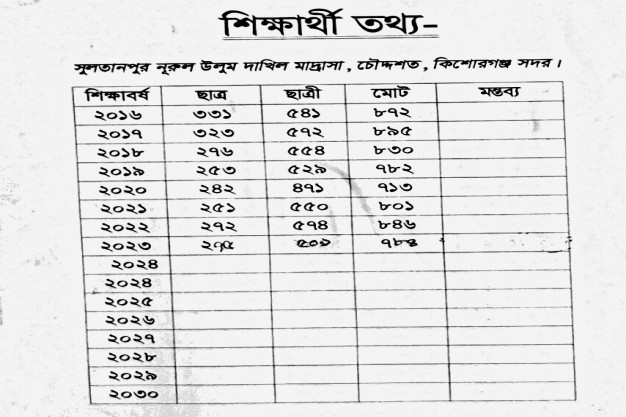 শিক্ষার্থী তথ্য-
সুলতানপুর নূরুল উলুম দাখিল মাদ্রাসা, চৌদ্দশত, কিশোরগঞ্জ সদর।
শিক্ষাবর্ষ ছাত্র ছাত্রী মোট মন্তব্য
২০১৬ ৩৩১ ৫৪১ ৮৭২
২০১৭ ৩২৩ ৫৭২ ৮৯৫
২০১৮ ২৭৬ ৫৫৪ ৮৩০
২০১৯ ২৫৩ ৫২৯ ৭৮২
২০২০ ২৪২ ৪৭১ ৭১৩
২০২১ ২৫১ ৫৫০ ৮০১
২০২২ ২৭২ ৫৭৪ ৮৪৬
২০২৩ ২৭৫ ৫০৯ ৭৮৪
২০২৪
২০২৪
২০২৫
২০২৬
২০২৭
২০২৮
২০২৯
২০৩০